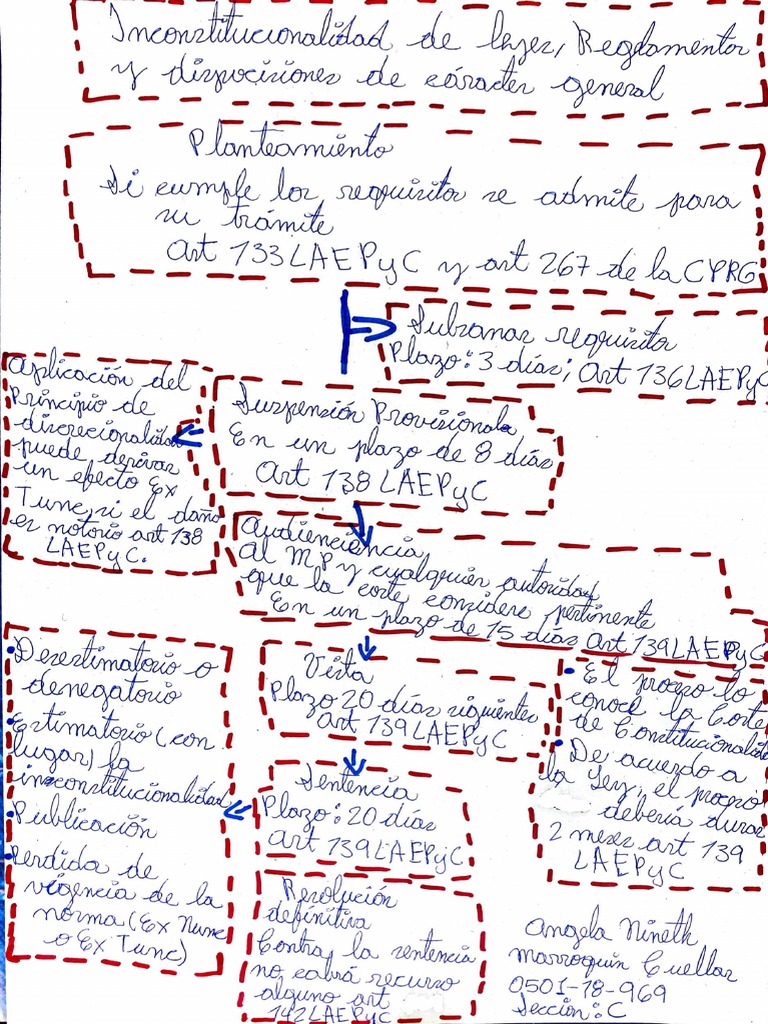 Inconstitucionalidad de leyes, Reglamentos
y disposiciones de cáracter general
Planteamiento
Si cumple los requisitos se admite para
su trámite
Art 133 LAEPyC y art 267 de la CPRG
Subsanar requisitos
Plazo: 3 días; Art 136 LAEPyC
Aplicación del
Principio de
discrecionalidad
puede derivar
un efecto Ex
Tunc, si el daño
es notorio art 138
LAEPyC.
Suspensión Provisional
En un plazo de 8 días
Art 138 LAEPyC
Audienciencia
Al MP y cualquier autoridad
que la corte considere pertinente
En un plazo de 15 días Art 139 LAEPyC
Vista
Plazo 20 días siguientes
Art 139 LAEPyC
• El proceso lo
conoce la Corte
de Constitucionalidad
• De acuerdo a
la Ley, el proceso
debería durar
2 meses art 139
LAEPyC
• Desestimatorio o
denegatorio
• Estimatorio (con
lugar) la
inconstitucionalidad
• Publicación
• Perdida de
vigencia de la
norma (Ex Nunc
o Ex Tunc)
Sentencia
Plazo: 20 días
Art 139 LAEPyC
Resolución
definitiva
Contra la sentencia
no cabrá recurso
alguno art
142 LAEPyC
Angela Nineth
Marroquín Cuellar
0501-18-969
Sección: C